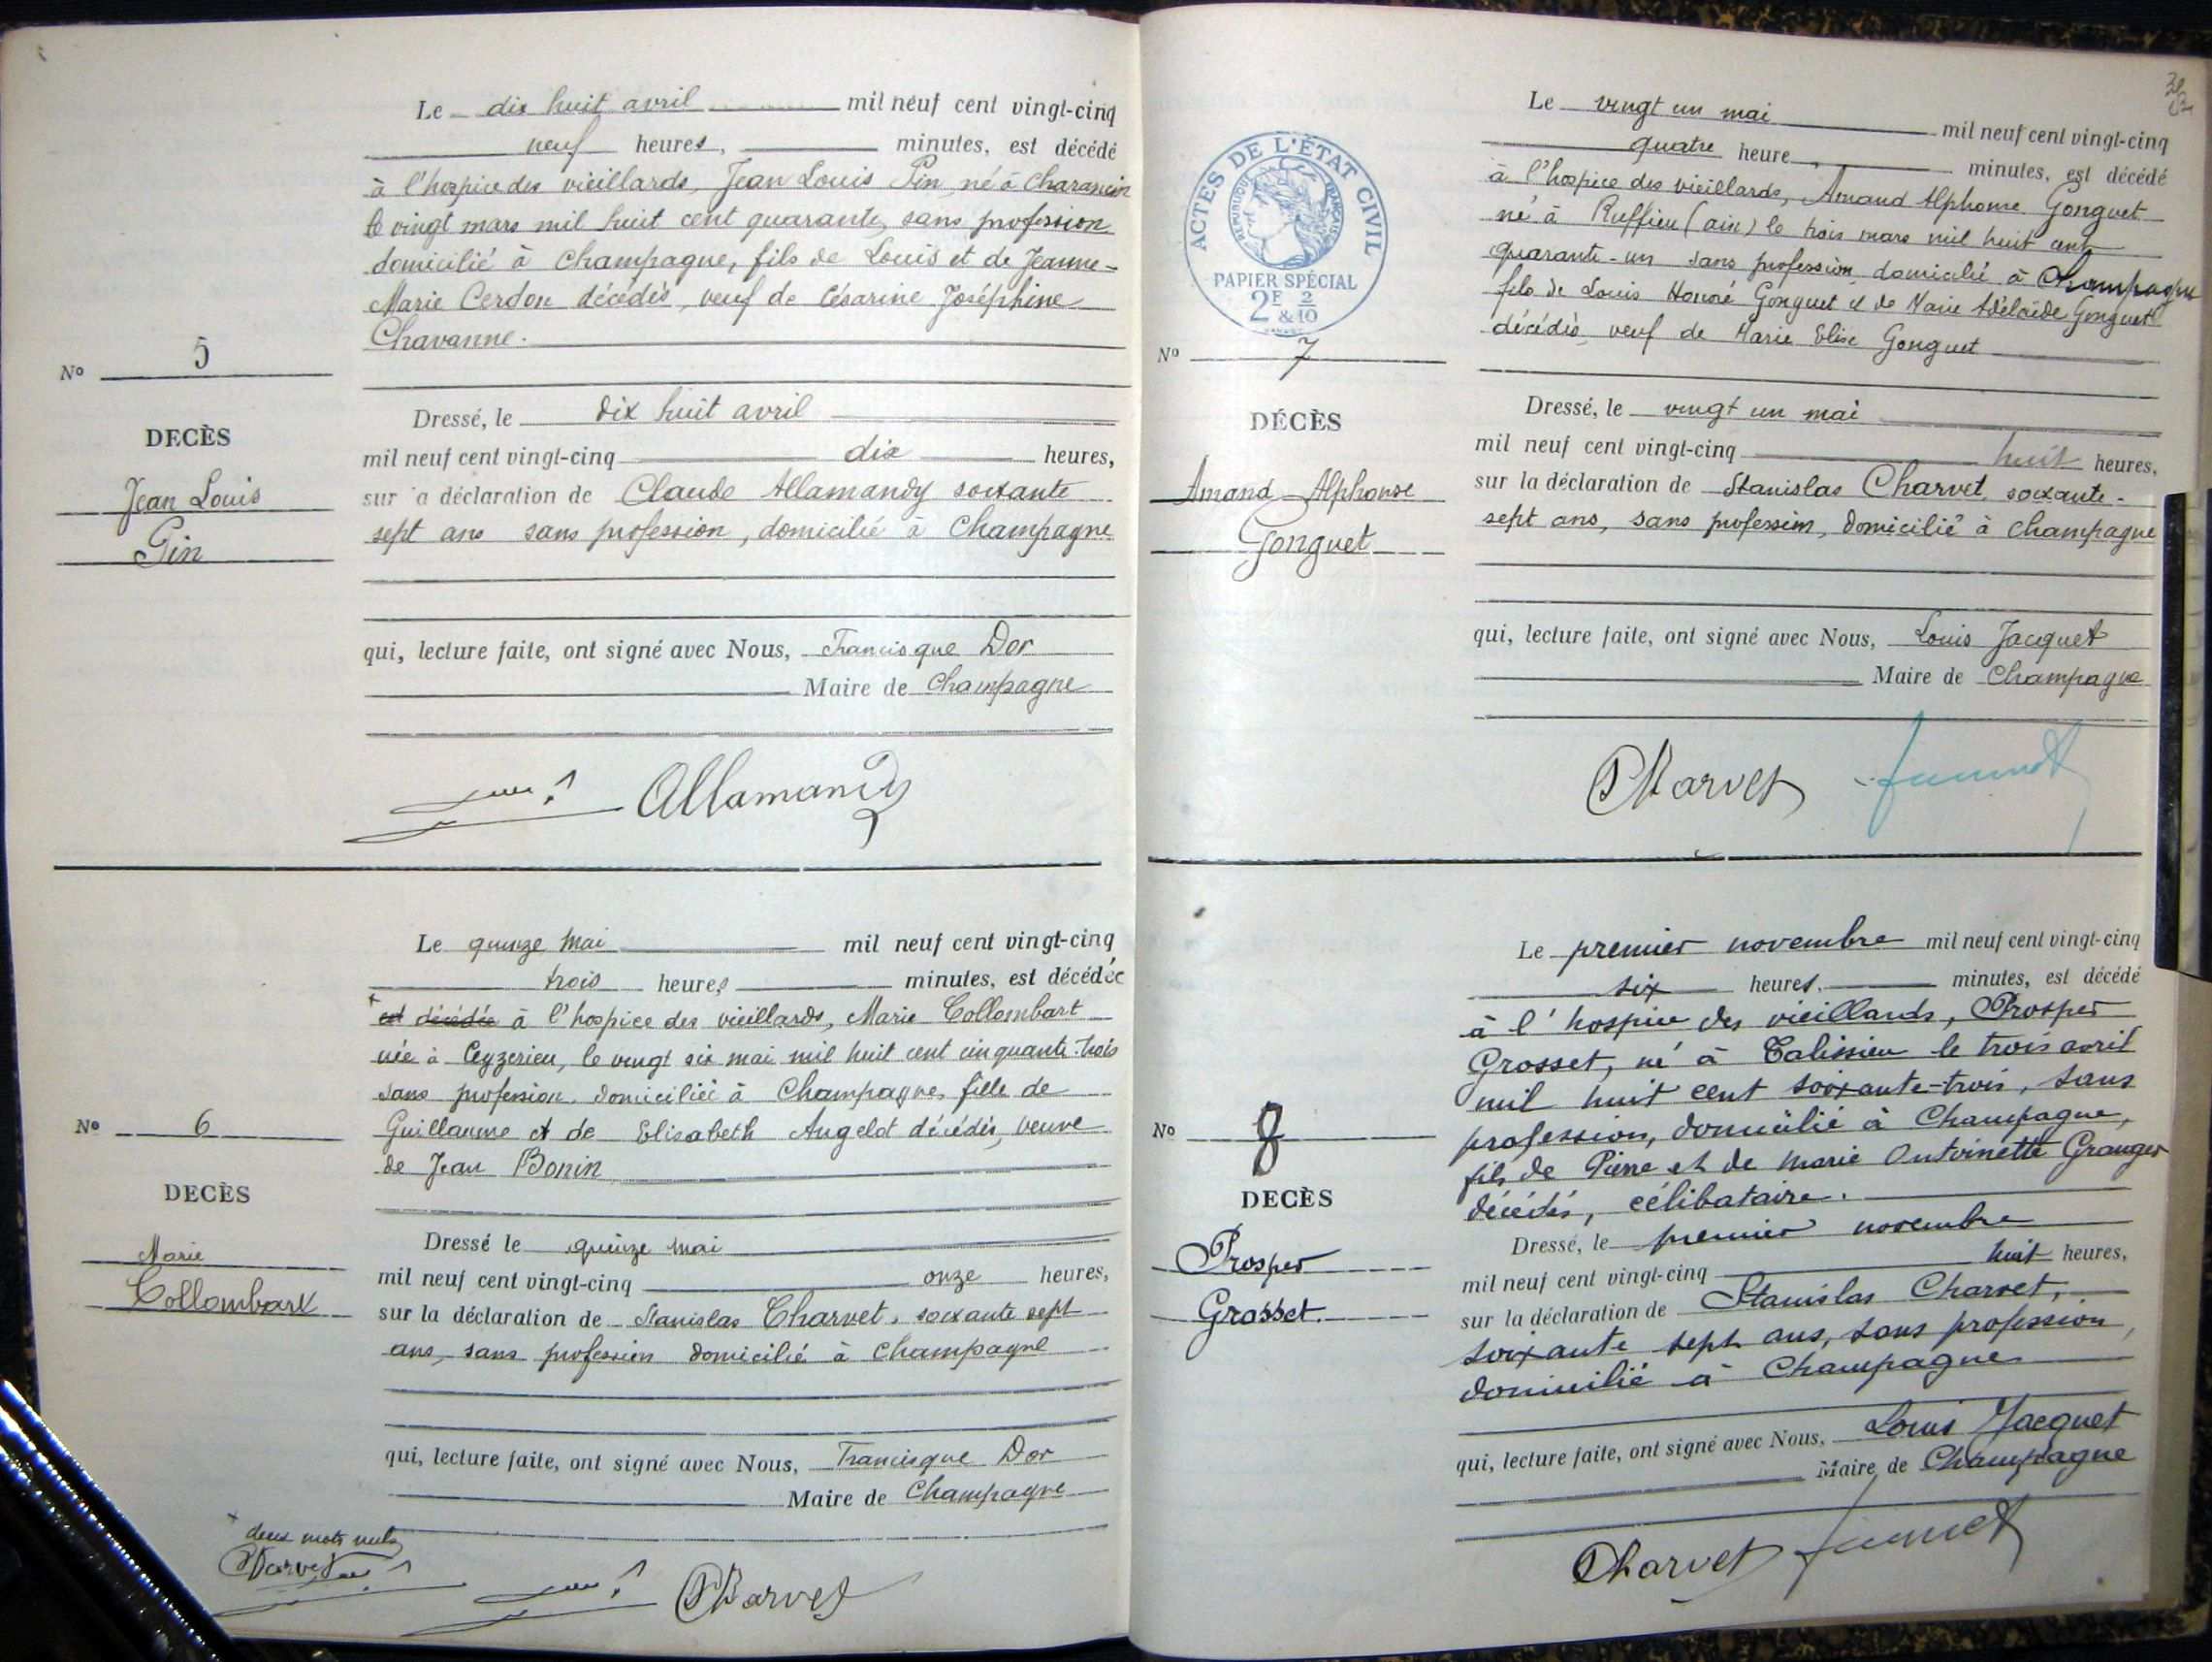 Le dix huit avril mil neuf cent vingt-cinq
neuf heures, minutes, est décédé
à l'hospice des vieillards, Jean Louis Pin né à Charancin
le vingt mars mil huit cent quarante, sans profession
domicilié à Champagne, fils de Louis et de Jeanne-
Marie Cerdon décédés, veuf de Césarine Joséphine
Chavanne.
No 5
DECÈS
Jean Louis
Pin
Dressé, le dix huit avril
mil neuf cent vingt-cinq dix heures,
sur la déclaration de Claude Allamandy soixante
sept ans sans profession, domicilié à Champagne
qui, lecture faite, ont signé avec Nous, Francisque Dor
Maire de Champagne
Allamandy
Le quinze mai mil neuf cent vingt-cinq
trois heures minutes, est décédée
+ est décédée à l'hospice des vieillards, Marie Collombart
née à Ceyzerieu, le vingt six mai mil huit cent cinquante-trois
sans profession domiciliée à Champagne, fille de
Guillaume et de Elisabeth Angelot décédés, veuve
de Jean Bonin
No 6
DECÈS
Marie
Collombart
Dressé le quinze mai
mil neuf cent vingt-cinq onze heures,
sur la déclaration de Stanislas Charvet, soixante sept
ans, sans profession domicilié à Champagne
qui, lecture faite, ont signé avec Nous, Francisque Dor
Maire de Champagne
+ deux mots nuls
Charvet
Charvet
Le vingt un mai mil neuf cent vingt-cinq
quatre heure, minutes, est décédé
à l'hospice des vieillards, Amand Alphonse Gonguet
né à Ruffieu (ain) le trois mars mil huit cent
quarante-un sans profession domicilié à Champagne
fils de Louis Honoré Gonguet et de Marie Adélaïde Gonguet
décédés, veuf de Marie Elise Gonguet
ACTES DE L'ÉTAT CIVIL
RÉPUBLIQUE FRANÇAISE
PAPIER SPÉCIAL
2F & 2/10
No 7
DÉCÈS
Amand Alphonse
Gonguet
Dressé, le vingt un mai
mil neuf cent vingt-cinq huit heures,
sur la déclaration de Stanislas Charvet, soixante-
sept ans, sans profession, domicilié à Champagne
qui, lecture faite, ont signé avec Nous, Louis Jacquet
Maire de Champagne
Charvet
Le premier novembre mil neuf cent vingt-cinq
six heures, minutes, est décédé
à l'hospice des vieillards, Prosper
Grosset, né à Talissieu le trois avril
mil huit cent soixante-trois, sans
profession, domicilié à Champagne,
fils de Pierre et de Marie Antoinette Granger
décédés, célibataire.
No 8
DECÈS
Prosper
Grosset.
Dressé, le premier novembre
mil neuf cent vingt-cinq huit heures,
sur la déclaration de Stanislas Charvet,
soixante sept ans, sans profession,
domicilié à Champagne
qui, lecture faite, ont signé avec Nous, Louis Jacquet
Maire de Champagne
Charvet